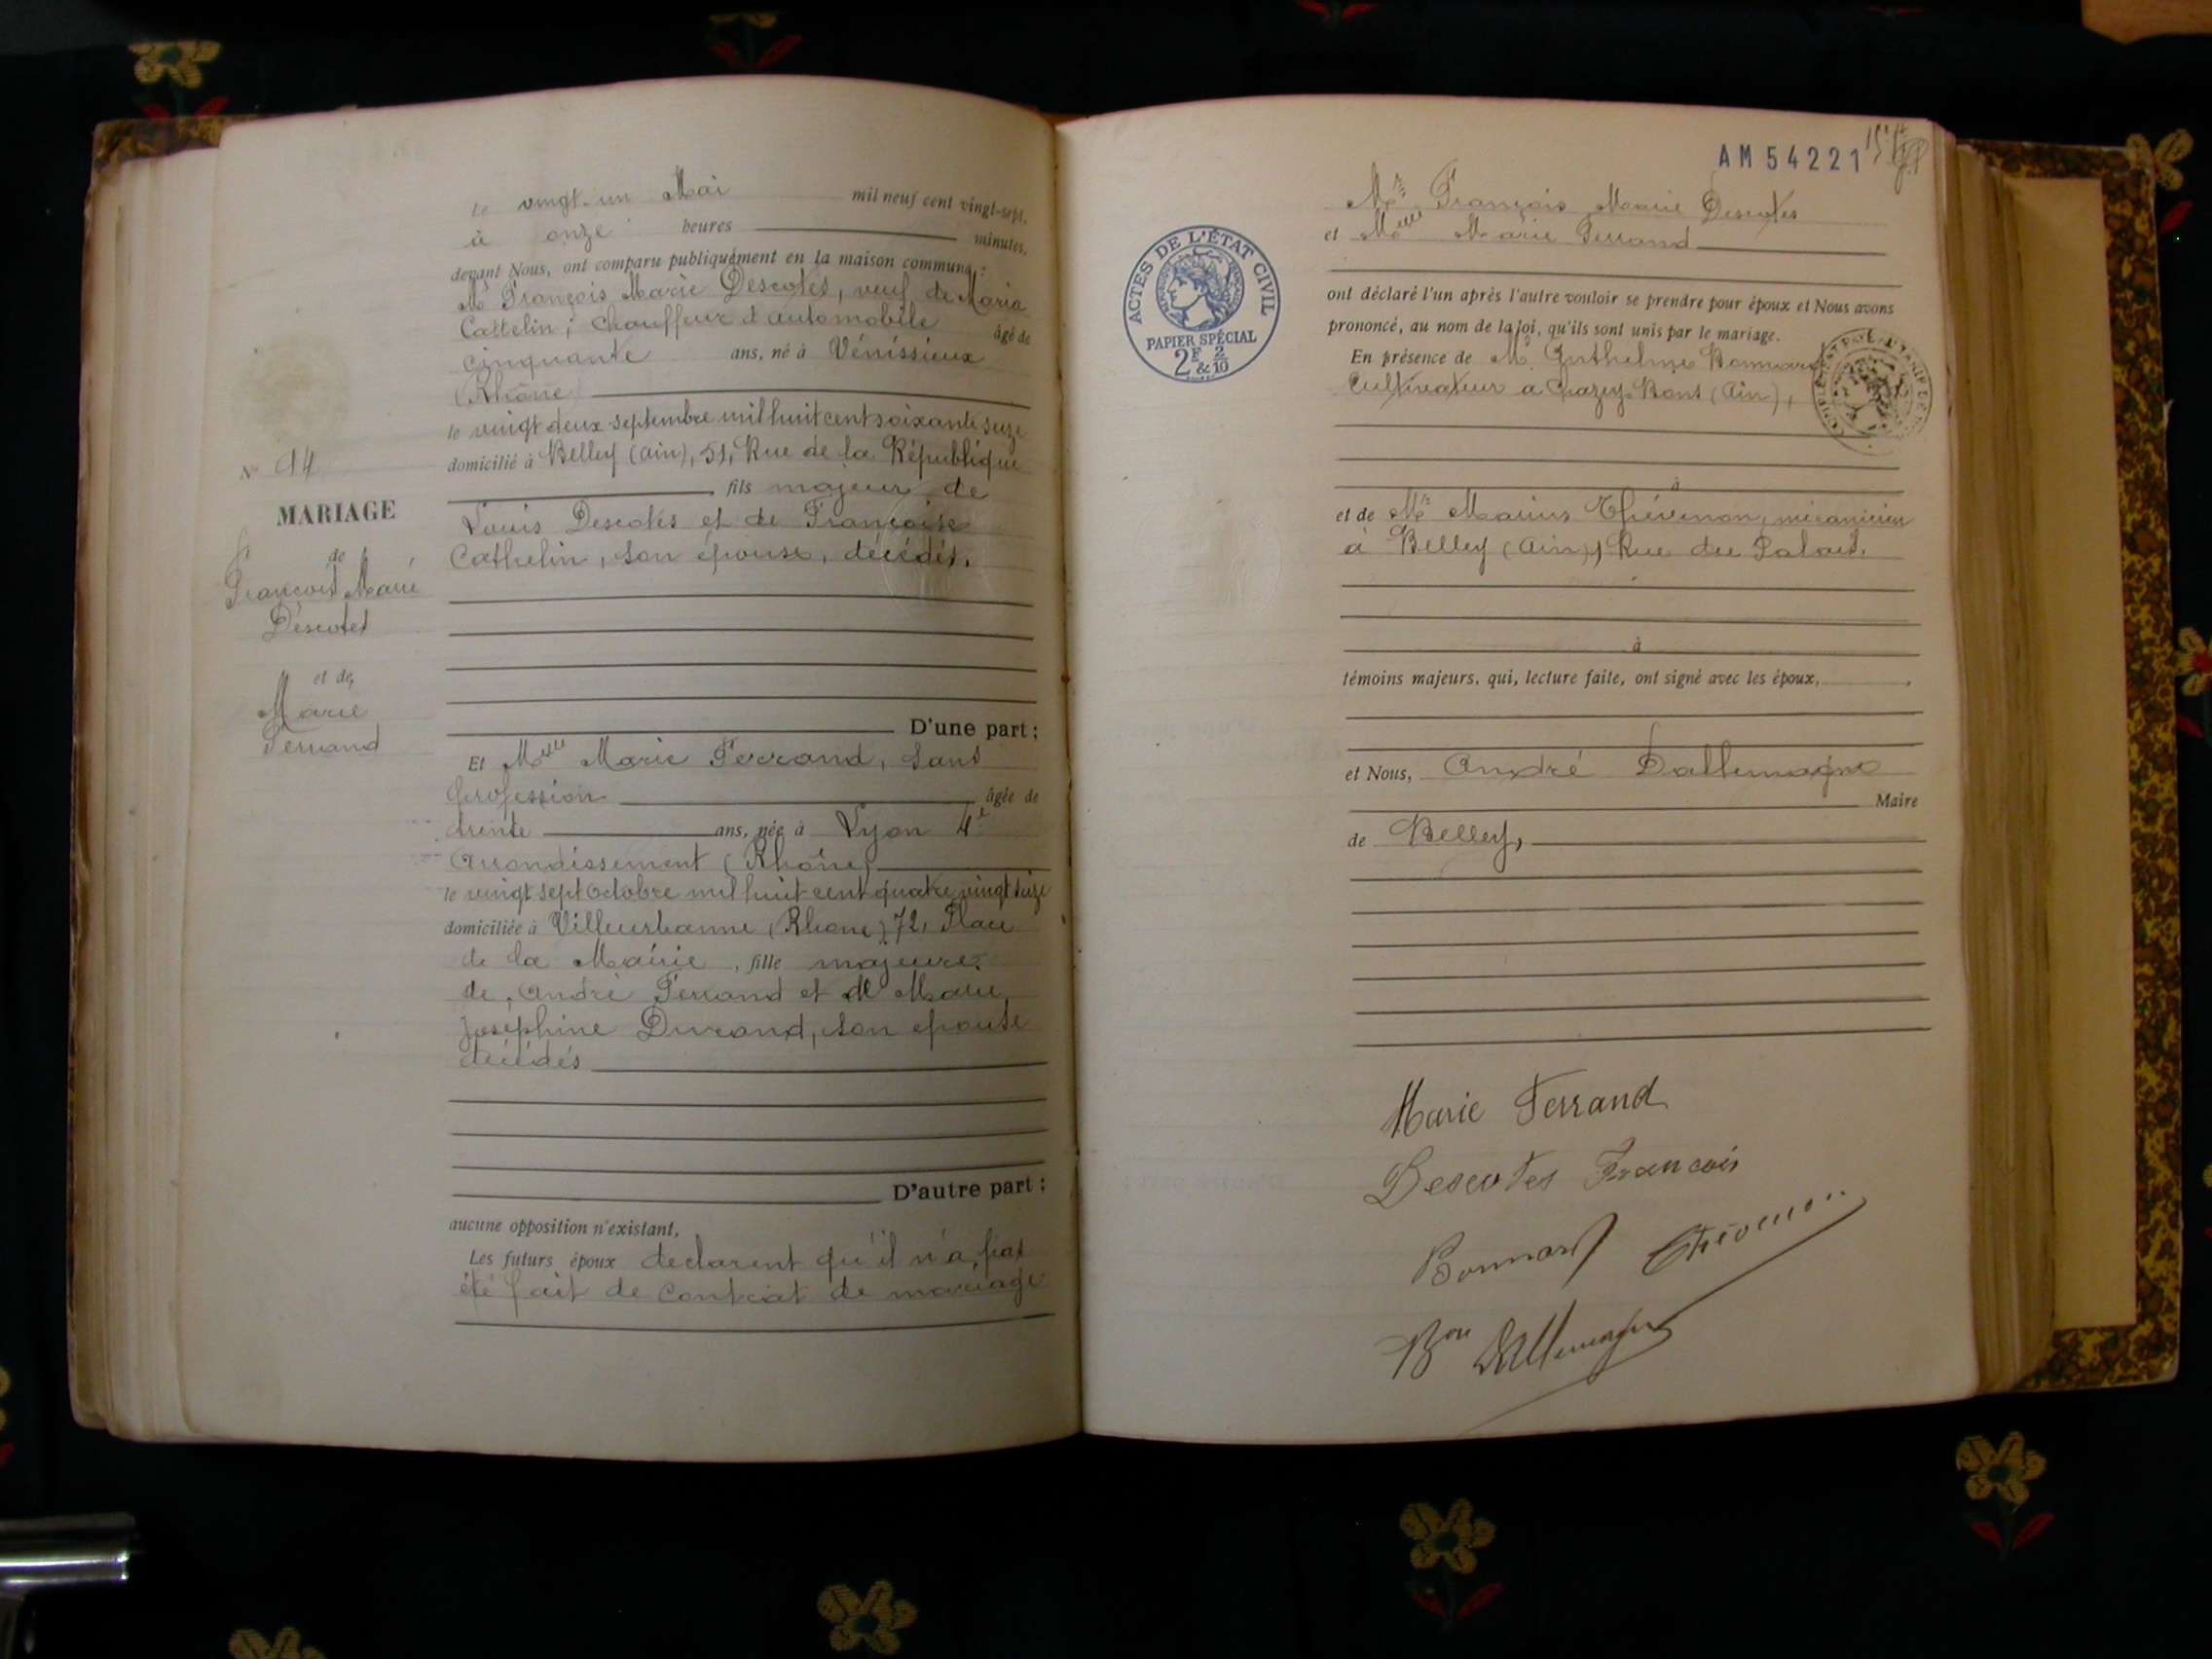 le vingt-un Mai mil neuf cent vingt-sept.
à onze heures minutes,
devant Nous, ont comparu publiquement en la maison commune :
Mr François Marie Descotes, veuf de Maria
Cattelin ; Chauffeur d'automobile âgé de
cinquante ans, né à Vénissieux
(Rhône)
le vingt deux septembre mil huit cent soixante seize
domicilié à Belley (Ain), 51, Rue de la République
fils majeur de
Louis Descotes et de Françoise
Cathelin, son épouse, décédés.
D'une part :
Et Melle Marie Ferrand, sans
profession âgée de
trente ans, née à Lyon 4e
Arrondissement (Rhône)
le vingt sept Octobre mil huit cent quatre vingt seize
domiciliée à Villeurbanne (Rhône) 72, Place
de la Mairie, fille majeure
de André Ferrand et de Marie
Joséphine Durand, son épouse
décédés
D'autre part :
aucune opposition n'existant,
Les futurs époux déclarent qu'il n'a pas
été fait de contrat de mariage
No 94
MARIAGE
de
François Marie
Descotes
et de
Marie
Ferrand
AM 54221
Mr François Marie Descotes
et Melle Marie Ferrand
ont déclaré l'un après l'autre vouloir se prendre pour époux et Nous avons
prononcé, au nom de la loi, qu'ils sont unis par le mariage.
En présence de Mr Anthelme Bonnard
Cultivateur à Chazey-Bons (Ain),
à
et de Mr Marius Thévenon, mécanicien
à Belley (Ain), Rue du Palais.
à
témoins majeurs, qui, lecture faite, ont signé avec les époux,
et Nous, André Dallemagne
Maire
de Belley,
ACTES DE L'ÉTAT CIVIL
PAPIER SPÉCIAL
2F & 2/10
Marie Ferrand
Descotes Francois
Bonnard Thévenon
Bon Dallemagne